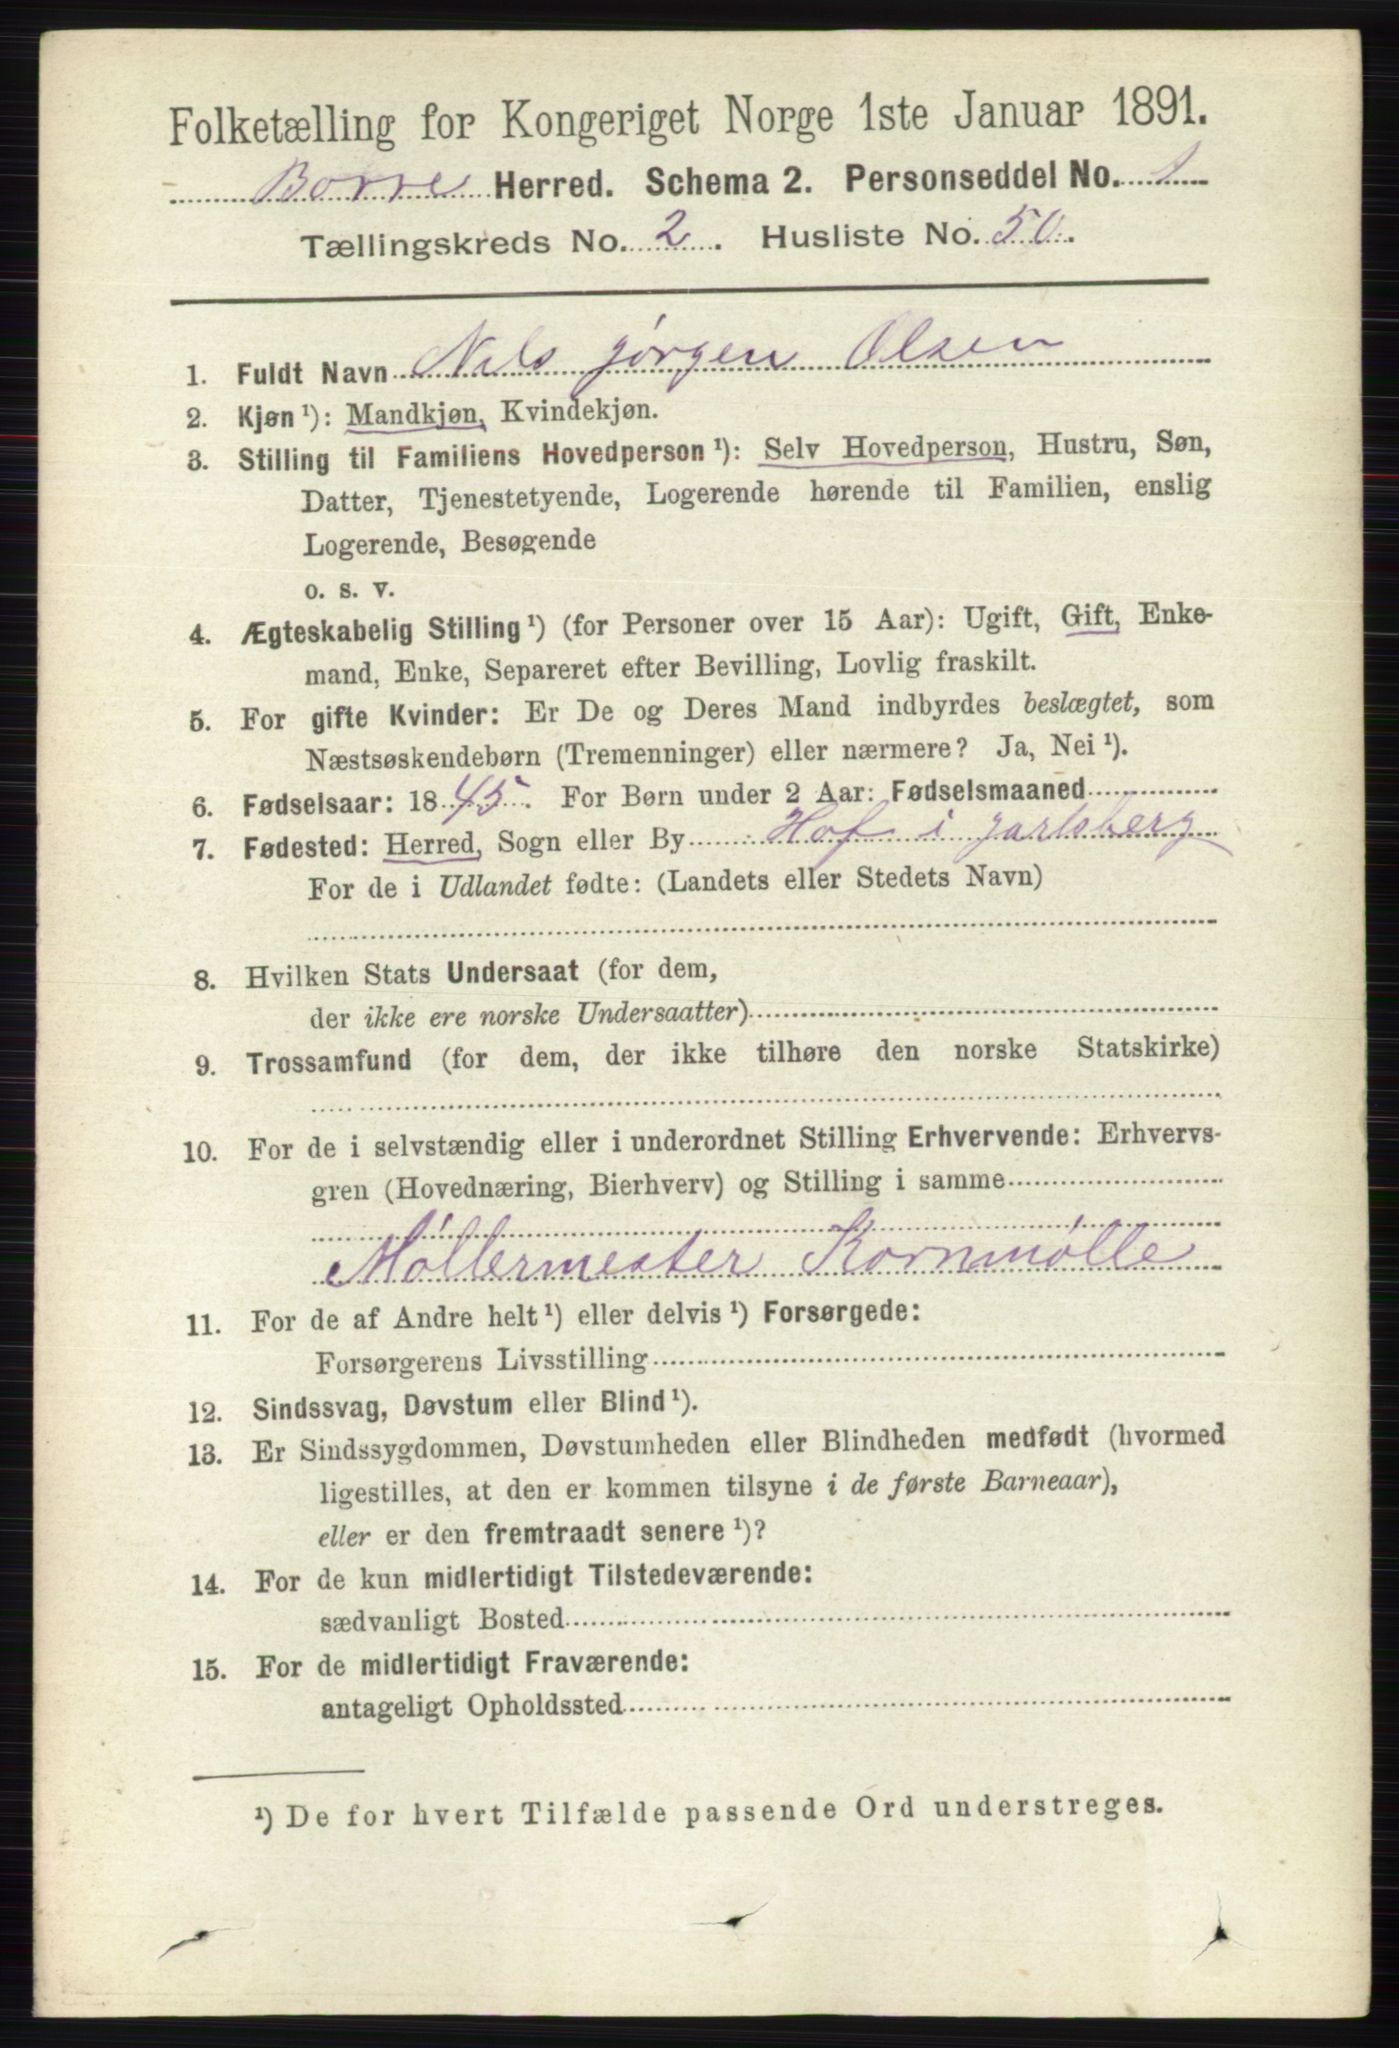 Folketælling for Kongeriget Norge 1ste Januar 1891.
Borre Herred. Schema 2. Personseddel No. 1
Tællingskreds No. 2. Husliste No. 50.
1. Fuldt Navn Nils Jörgen Olsen
2. Kjøn ¹): Mandkjøn, Kvindekjøn.
3. Stilling til Familiens Hovedperson ¹): Selv Hovedperson, Hustru, Søn,
Datter, Tjenestetyende, Logerende hørende til Familien, enslig
Logerende, Besøgende
o. s. v.
4. Ægteskabelig Stilling ¹) (for Personer over 15 Aar): Ugift, Gift, Enke-
mand, Enke, Separeret efter Bevilling, Lovlig fraskilt.
5. For gifte Kvinder: Er De og Deres Mand indbyrdes beslægtet, som
Næstsøskendebørn (Tremenninger) eller nærmere? Ja, Nei ¹).
6. Fødselsaar: 1845. For Børn under 2 Aar: Fødselsmaaned
7. Fødested: Herred, Sogn eller By Hof i Jarlsberg
For de i Udlandet fødte: (Landets eller Stedets Navn)
8. Hvilken Stats Undersaat (for dem,
der ikke ere norske Undersaatter)
9. Trossamfund (for dem, der ikke tilhøre den norske Statskirke)
10. For de i selvstændig eller i underordnet Stilling Erhvervende: Erhvervs-
gren (Hovednæring, Bierhverv) og Stilling i samme
Möllermester Kornmölle
11. For de af Andre helt ¹) eller delvis ¹) Forsørgede:
Forsørgerens Livsstilling
12. Sindssvag, Døvstum eller Blind ¹).
13. Er Sindssygdommen, Døvstumheden eller Blindheden medfødt (hvormed
ligestilles, at den er kommen tilsyne i de første Barneaar),
eller er den fremtraadt senere ¹)?
14. For de kun midlertidigt Tilstedeværende:
sædvanligt Bosted
15. For de midlertidigt Fraværende:
antageligt Opholdssted
¹) De for hvert Tilfælde passende Ord understreges.